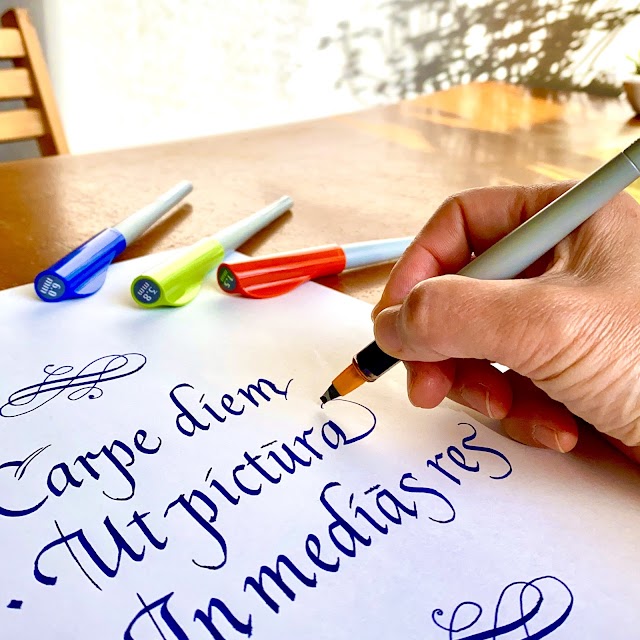 6.0 mm
3.8 mm
1.5
Carpe diem
Ut pictūra
In mediās res